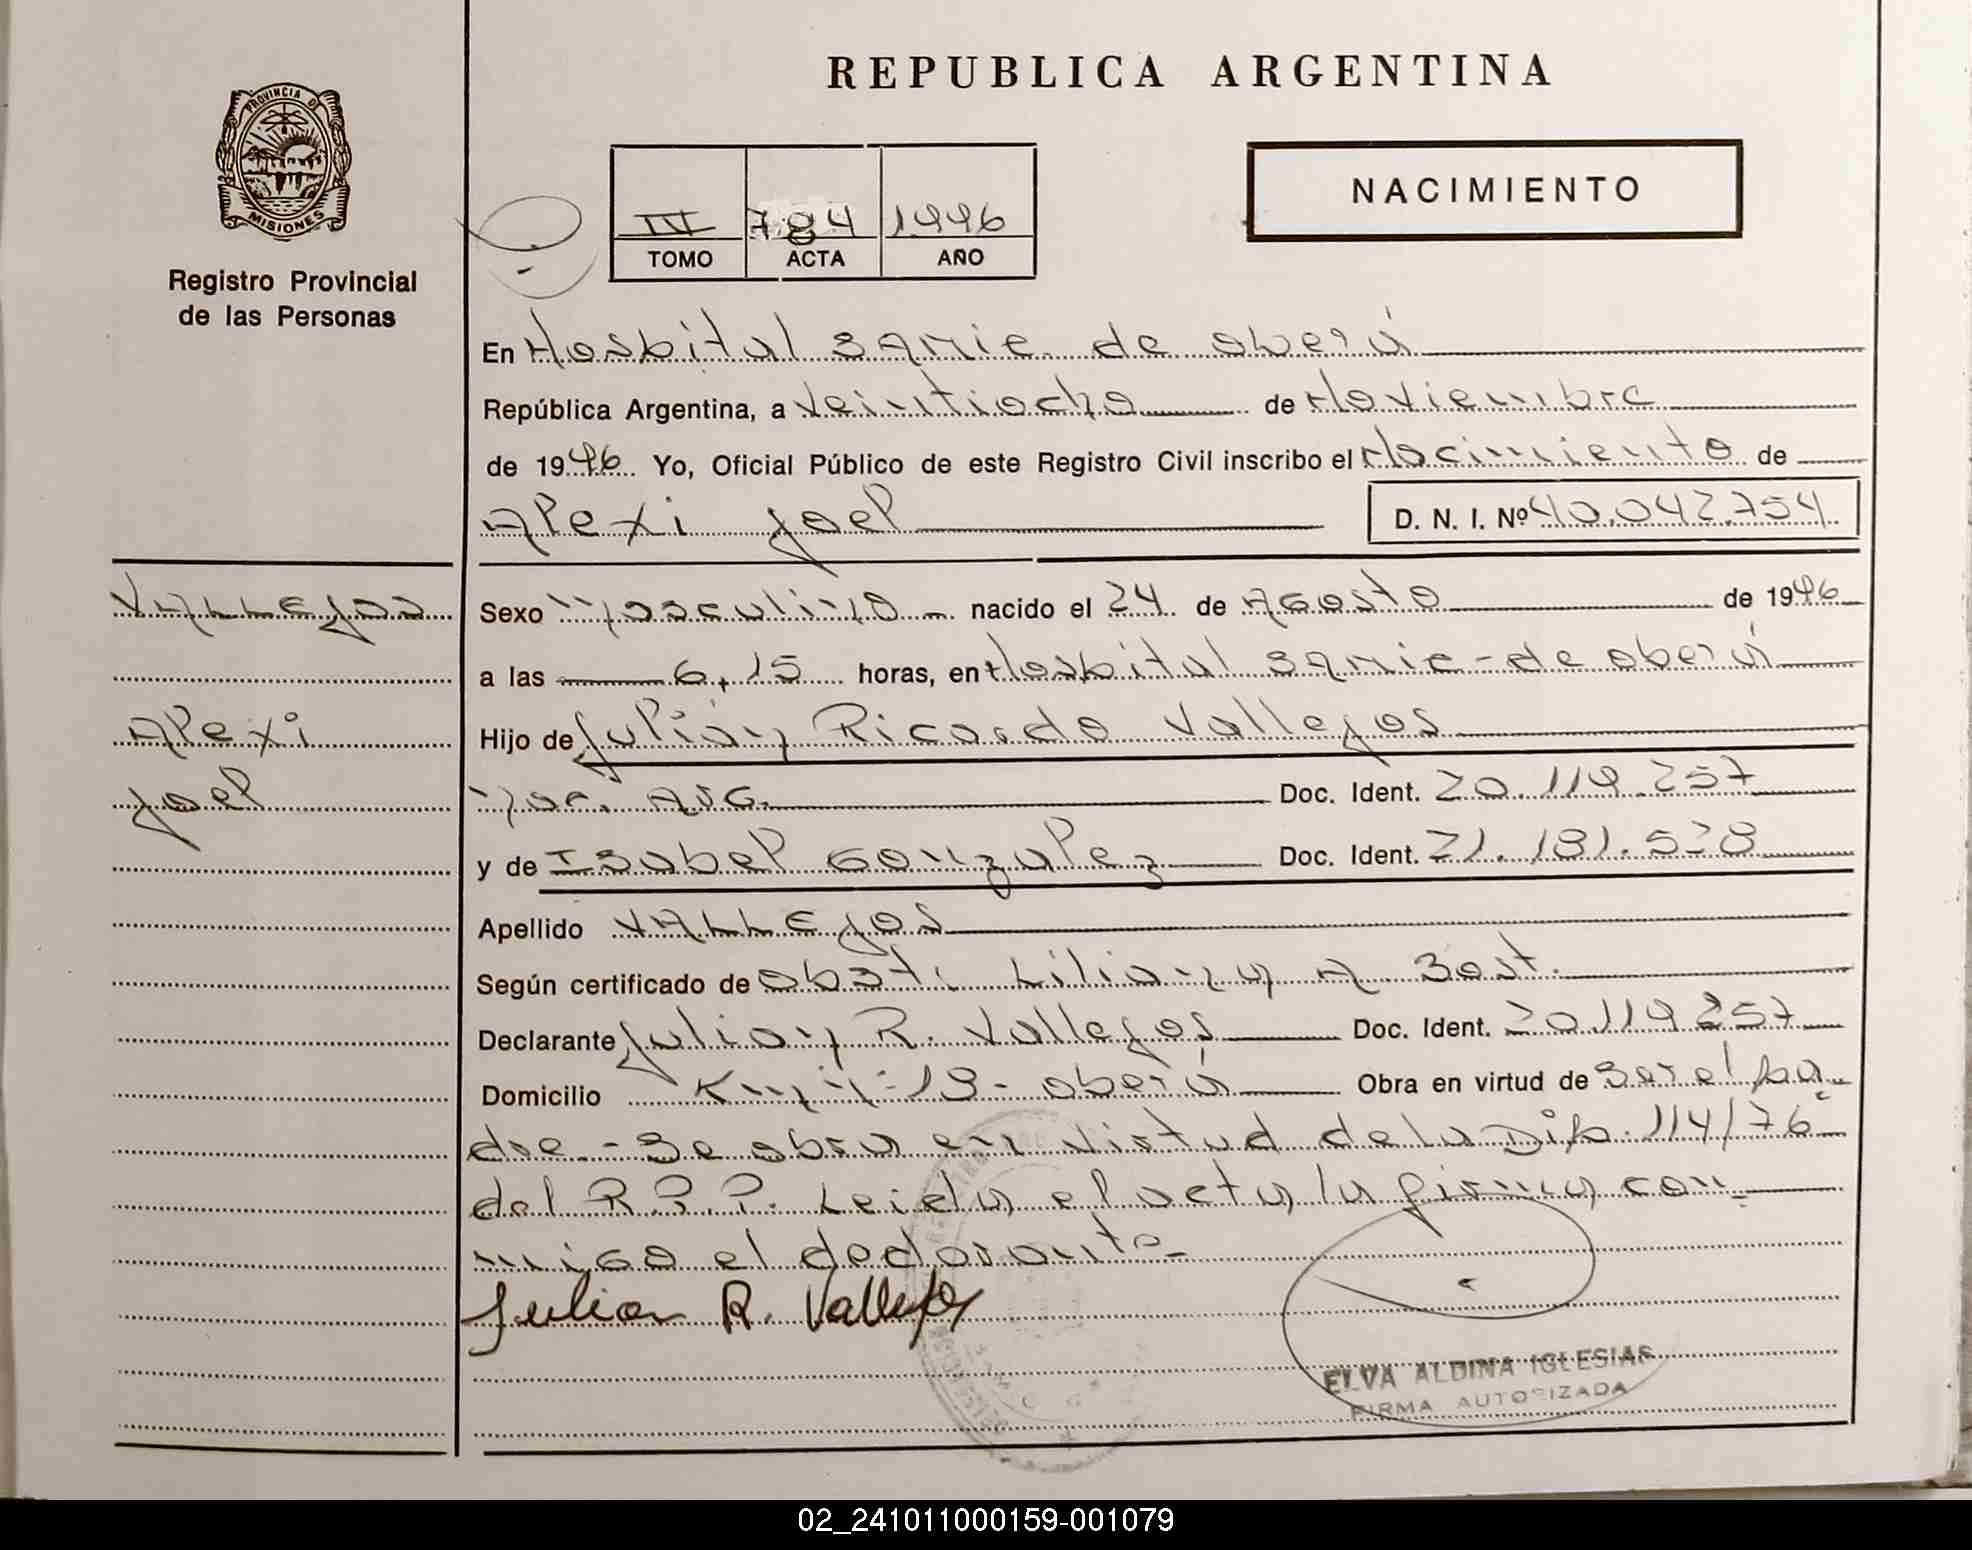 REPUBLICA ARGENTINA
PROVINCIA DE MISIONES
Registro Provincial
de las Personas
III 784 1996
TOMO ACTA AÑO
NACIMIENTO
En Hospital Samic de oberá
República Argentina, a Veintiocho de Noviembre
de 1996 Yo, Oficial Público de este Registro Civil inscribo el Nacimiento de
Alexi Joel D. N. I. Nº 40.042.754
VALLEJOS
Alexi
Joel
Sexo Masculino nacido el 24 de Agosto de 1996
a las 6,15 horas, en Hospital Samic - de oberá
Hijo de Julián Ricardo Vallejos
Nac. Arg. Doc. Ident. 20.119.257
y de Isabel Gonzalez Doc. Ident. 21.181.528
Apellido VALLEJOS
Según certificado de obst. Liliana A Bost.
Declarante Julian R. Vallejos Doc. Ident. 20119257
Domicilio Km Nº 13 - oberá Obra en virtud de Ser el pa
dre - Se obra en virtud de la Dip. 114/76
del R.P.P. Leida el acta, la firma con
migo el declarante -
Julian R. Vallejos
ELVA ALDINA IGLESIAS
FIRMA AUTORIZADA
02_241011000159-001079